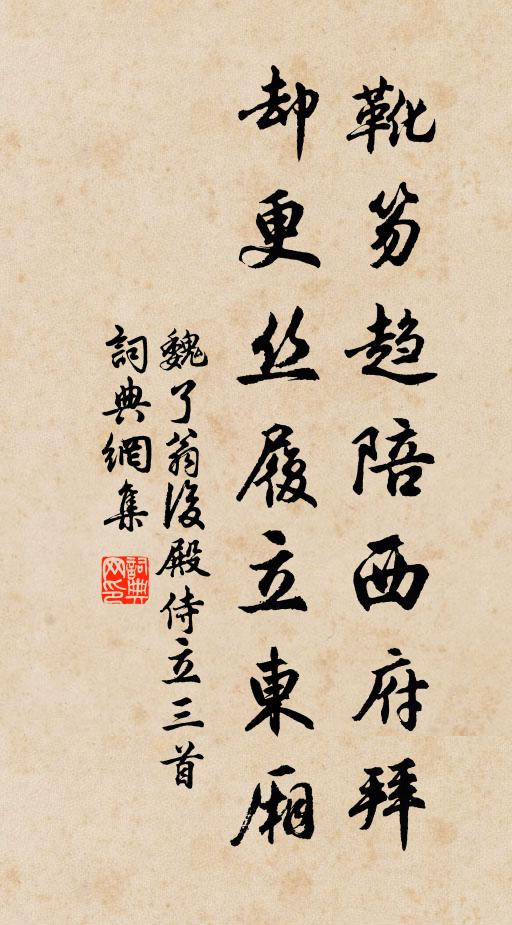 靴笏趋陪西府拜
却更丝履立東厢
魏了翁後殿侍立三首
詞典網集
詞典网印